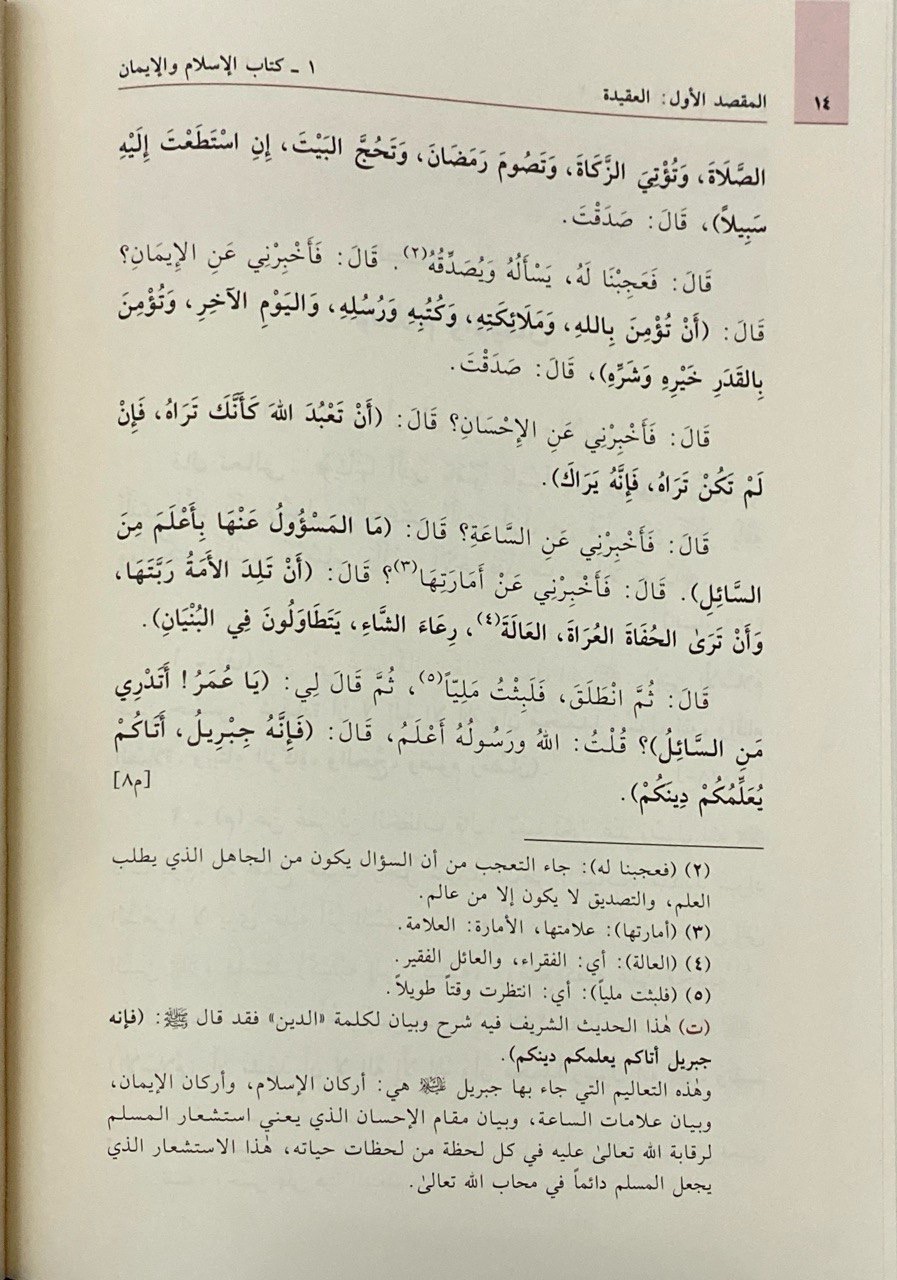 ١ ـ كتاب الإسلام والإيمان
المقصد الأول: العقيدة
١٤
الصَّلَاةَ، وَتُؤْتِيَ الزَّكَاةَ، وَتَصُومَ رَمَضَانَ، وَتَحُجَّ البَيْتَ، إِنِ اسْتَطَعْتَ إِلَيْهِ
سَبِيلاً)، قَالَ: صَدَقْتَ.
قَالَ: فَعَجِبْنَا لَهُ، يَسْأَلُهُ وَيُصَدِّقُهُ(٢). قَالَ: فَأَخْبِرْنِي عَنِ الإِيمَانِ؟
قَالَ: (أَنْ تُؤْمِنَ بِاللهِ، وَمَلَائِكَتِهِ، وَكُتُبِهِ وَرُسُلِهِ، وَاليَوْمِ الآخِرِ، وَتُؤْمِنَ
بِالقَدَرِ خَيْرِهِ وَشَرِّهِ)، قَالَ: صَدَقْتَ.
قَالَ: فَأَخْبِرْنِي عَنِ الإِحْسَانِ؟ قَالَ: (أَنْ تَعْبُدَ اللهَ كَأَنَّكَ تَرَاهُ، فَإِنْ
لَمْ تَكُنْ تَرَاهُ، فَإِنَّهُ يَرَاكَ).
قَالَ: فَأَخْبِرْنِي عَنِ السَّاعَةِ؟ قَالَ: (مَا المَسْؤُولُ عَنْهَا بِأَعْلَمَ مِنَ
السَّائِلِ). قَالَ: فَأَخْبِرْنِي عَنْ أَمَارَتِهَا(٣)؟ قَالَ: (أَنْ تَلِدَ الأَمَةُ رَبَّتَهَا،
وَأَنْ تَرَىٰ الحُفَاةَ العُرَاةَ، العَالَةَ(٤)، رِعَاءَ الشَّاءِ، يَتَطَاوَلُونَ فِي البُنْيَانِ).
قَالَ: ثُمَّ انْطَلَقَ، فَلَبِثْتُ مَلِيّاً(٥)، ثُمَّ قَالَ لِي: (يَا عُمَرُ! أَتَدْرِي
مَنِ السَّائِلُ)؟ قُلْتُ: اللهُ ورَسُولُهُ أَعْلَمُ، قَالَ: (فَإِنَّهُ جِبْرِيلُ، أَتَاكُمْ
يُعَلِّمُكُمْ دِينَكُمْ). [م٨]
(٢) (فعجبنا له): جاء التعجب من أن السؤال يكون من الجاهل الذي يطلب
العلم، والتصديق لا يكون إلا من عالم.
(٣) (أمارتها): علامتها، الأمارة: العلامة.
(٤) (العالة): أي: الفقراء، والعائل الفقير.
(٥) (فلبثت ملياً): أي: انتظرت وقتاً طويلاً.
(ت) هٰذا الحديث الشريف فيه شرح وبيان لكلمة «الدين» فقد قال ﷺ: (فإنه
جبريل أتاكم يعلمكم دينكم).
وهٰذه التعاليم التي جاء بها جبريل ﵇ هي: أركان الإسلام، وأركان الإيمان،
وبيان علامات الساعة، وبيان مقام الإحسان الذي يعني استشعار المسلم
لرقابة الله تعالىٰ عليه في كل لحظة من لحظات حياته، هٰذا الاستشعار الذي
يجعل المسلم دائماً في محاب الله تعالىٰ.